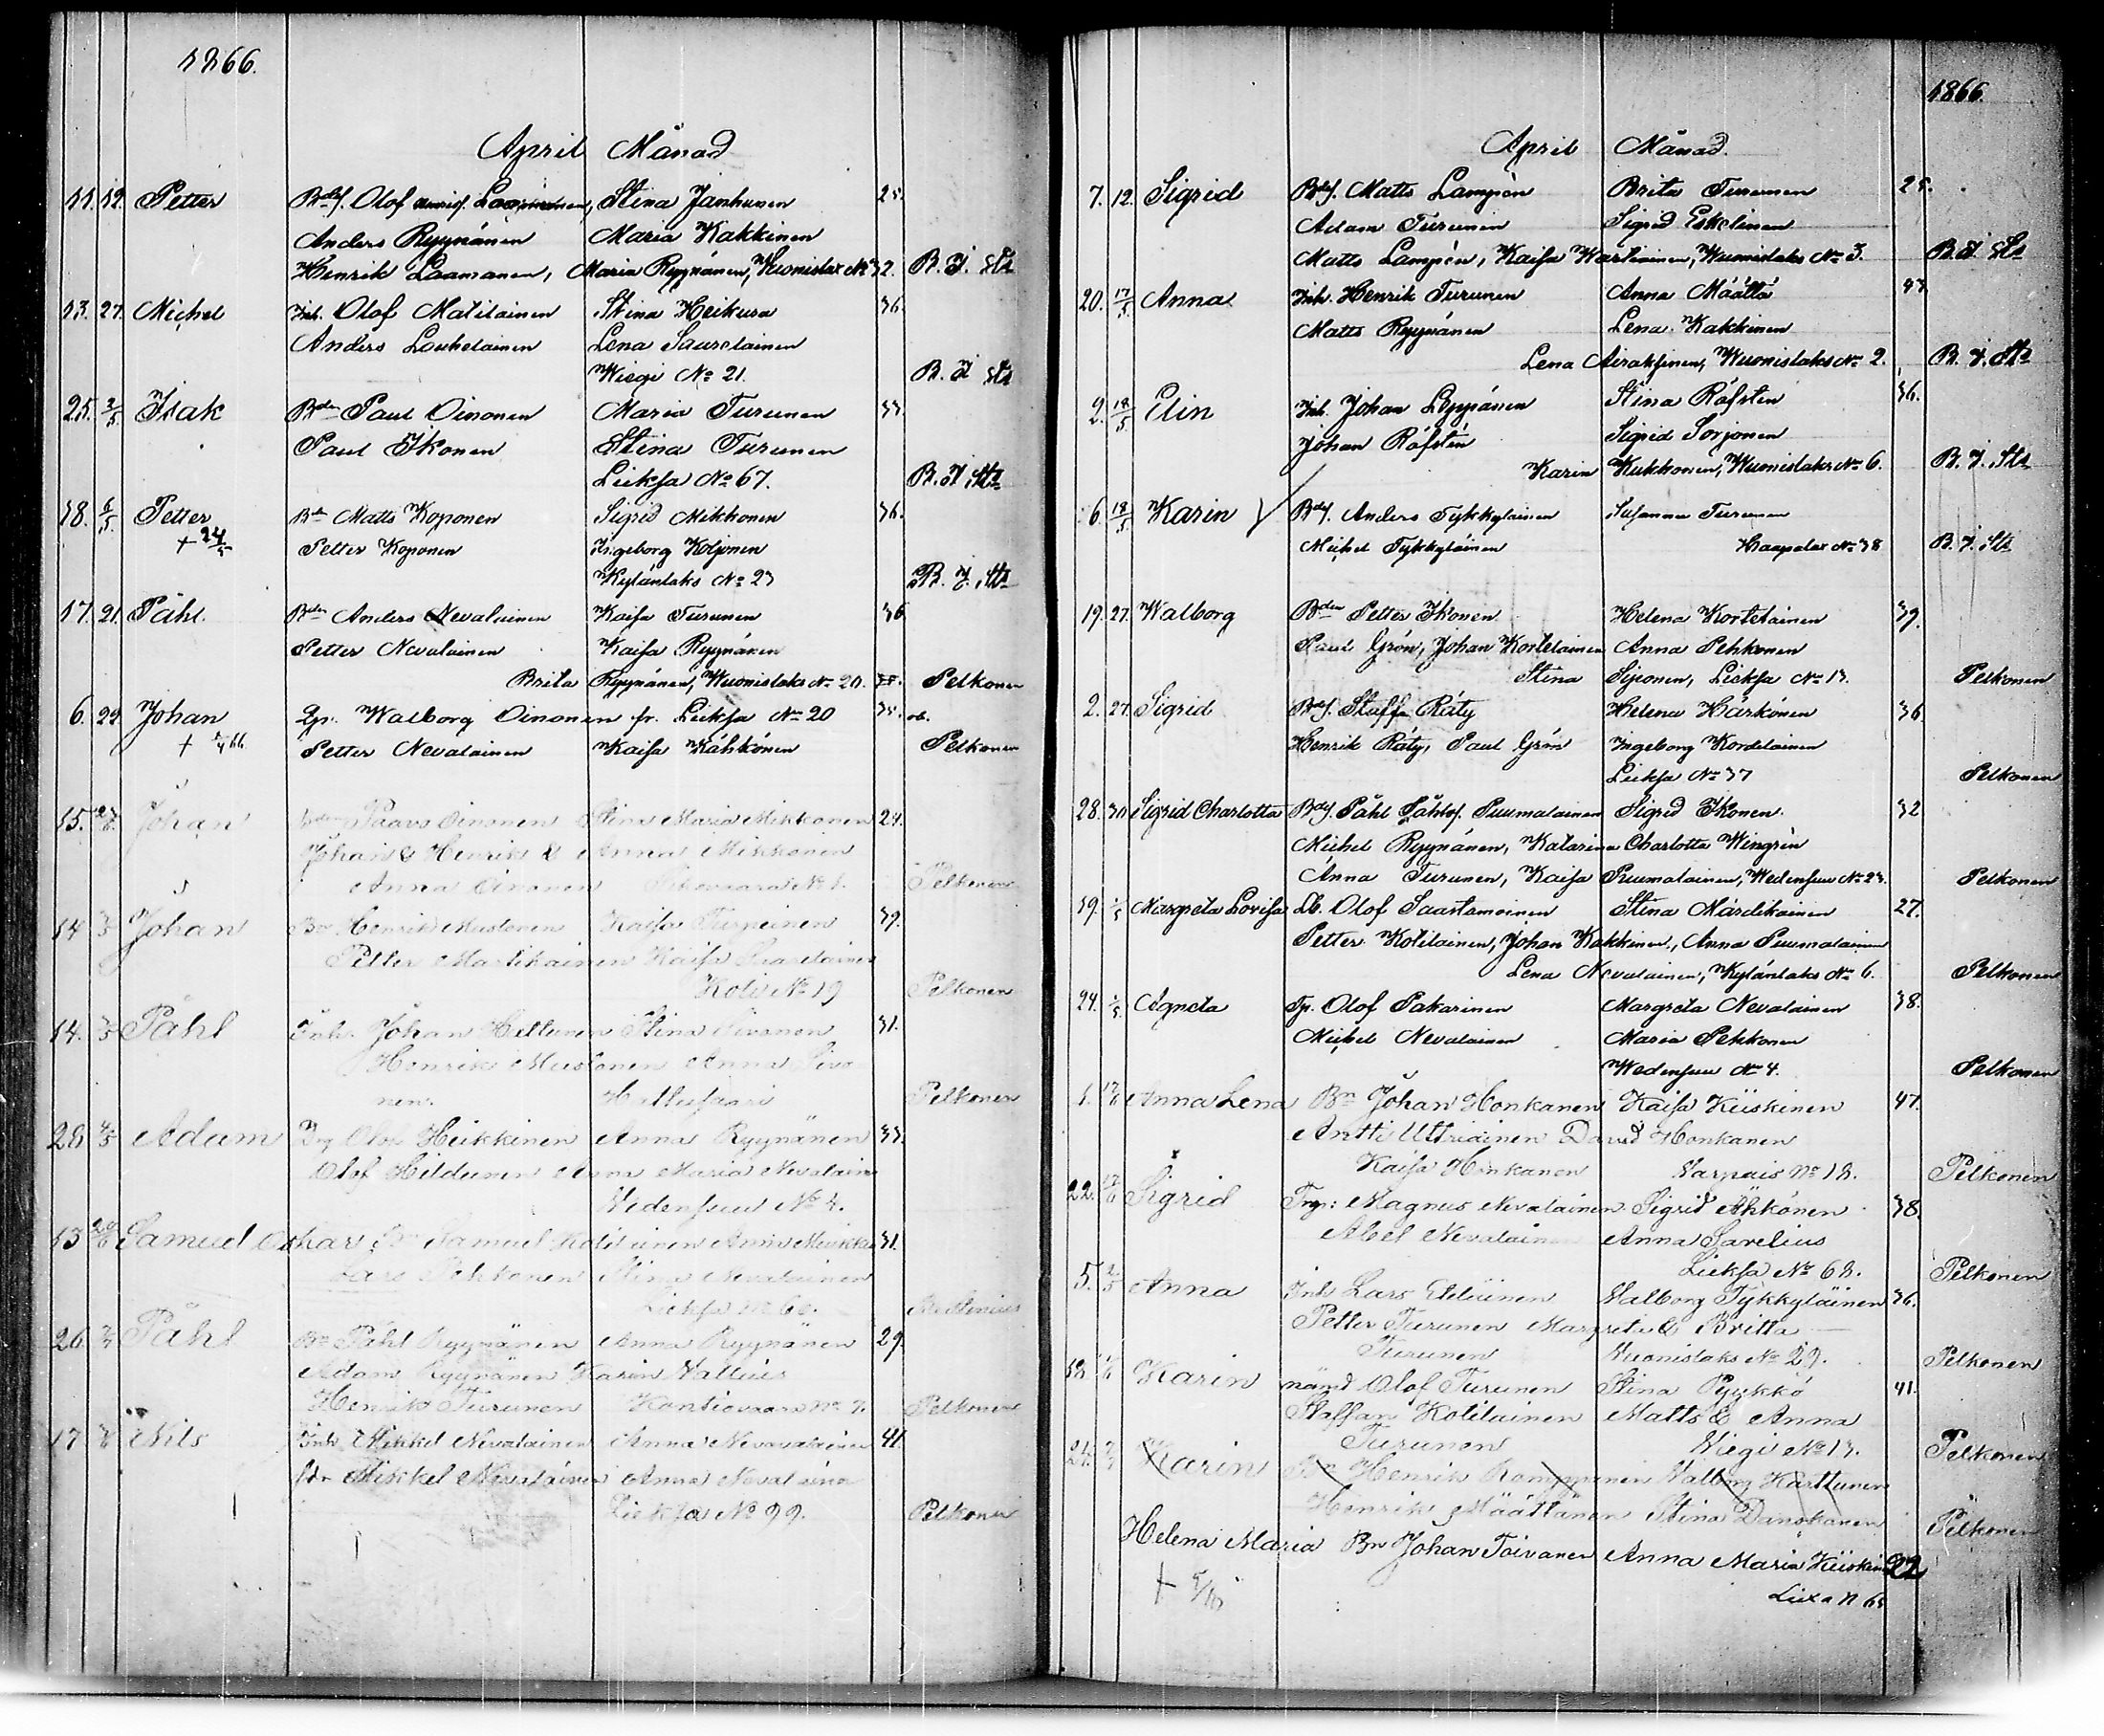 1866.
April Månad
11. 12. Petter Bdsf. Olof Laamanen, Stina Janhunen 25.
Anders Ryynänen Maria Kakkinen
Henrik Laamanen, Maria Ryynänen, Wuonislax No 32. B. J. Sts
13. 27. Michel Inh. Olof Matilainen Stina Heikura 36.
Anders Louhelainen Lena Saurelainen
Wiegi No 21. B. J Sts
25. 2/5 Isak Bden Paul Oinonen Maria Turunen 33.
Paul Ikonen Stina Turunen
Lieksa No 67. B. J. Sts
18. 5/5 Petter Bd Matts Koponen Sigrid Mikkonen 36.
+ 24/5 Petter Koponen Ingeborg Koljonen
Kylänlaks No 23 B. J. Sts
17. 21. Påhl. Bden Anders Nevalainen Kaisa Turunen 36
Petter Nevalainen Kaisa Ryynänen
Brita Ryynänen, Wuonislaks No 20. Pelkonen
6. 29. Johan Qp. Walborg Oinonen fr. Lieksa No 20 35. oä.
+ Petter Nevalainen Kaisa Kähkönen Pelkonen
15. Johan Paavo Oinonen Stina Maria Mikkonen 24.
Johan & Henrik & Anna Mikkonen
Anna Oinonen Pelkonen
14 Johan Bn Henrik Mustonen Kaisa Turpeinen 39.
Petter Martikainen Kaisa
Koli No 19 Pelkonen
14. Påhl Inh. Johan Hiltunen Stina 31.
Henrik Mustonen Anna Sivo
nen. Hattusaari Pelkonen
28 4/5 Adam Olof Heikkinen Anna Ryynänen 33.
Olof Hildunen Anna Maria Nevalain
Wedensuu No 4.
13 Samuel Oskar Bn Samuel Kotilainen Anna 31.
Lars Pehkonen Stina Nevalainen
Lieksa No 60.
26. Påhl Bn Påhl Ryynänen Anna Ryynänen 29.
Adam Ryynänen Karin Vallius
Henrik Turunen Kontiovaara No 7. Pelkonen
17 Nils Inh Mikkel Nevalainen Anna Nevalainen 41.
Mikkel Nevalainen Anna Nevalaine
Lieksa No 99. Pelkonen
1866.
April Månad.
7. 12. Sigrid Bdsf. Matts Lampén Brita Turunen 25.
Adam Turunen Sigrid Eskelinen
Matts Lampén, Kaisa Kartiainen, Wuonislaks No 3. B. J. Sts
20. 17/5 Anna Inh. Henrik Turunen Anna Määttä 43.
Matts Ryynänen Lena Kakkinen
Lena Airaksinen, Wuonislaks No 2. B. J. Sts
2. 18/5 Elin Inh. Johan Leppänen Stina Räfsten 36.
Johan Räfstén Sigrid Sorjonen
Karin Kukkonen, Wuonislaks No 6. B. J. Sts
6. 18/5 Karin Bdsf. Anders Tykkyläinen Susanna Turunen
Michel Tykkyläinen Haapalax No 38 B. J. Sts
19. 27. Walborg Bden Petter Ikonen. Helena Kortelainen 39.
Paul Grön, Johan Kortelainen Anna Pehkonen
Stina Siponen, Lieksa No 13. Pelkonen
2. 27. Sigrid Bdsf. Staffan Räty Helena Härkönen 36
Henrik Räty, Paul Grön Ingeborg Kordelainen
Lieksa No 37 Pelkonen
28. 30. Sigrid Charlotta Bdsf. Påhl Påhlsf. Puumalainen Sigrid Ikonen. 32
Michel Ryynänen, Katarina Charlotta Wingrén
Anna Turunen, Kaisa Puumalainen, Wedensuu No 23. Pelkonen
19. 1/5 Margreta Lovisa Lb. Olof Saastamoinen Stina Mardikainen 27.
Petter Kotilainen, Johan Kakkinen, Anna Puumalainen
Lena Nevalainen, Kylänlaks No 6. Pelkonen
24. 1/5 Agneta Tp. Olof Pakarinen Margreta Nevalainen 38.
Michel Nevalainen Maria Pehkonen
Wedensuu No 4. Pelkonen
Anna Lena Bn Johan Honkanen Kaisa Kiiskinen 47.
Antti Uttriainen David Honkanen
Kaisa Honkanen Varpais No 18. Pelkonen
22. Sigrid Trp: Magnus Nevalainen Sigrid Ahkönen 38.
Abel Nevalainen Anna Savelius
Lieksa No 68. Pelkonen
5. 2/5 Anna Inh Lars Walborg Tykkyläinen 36.
Petter Turunen Margreta & Britta
Turunen Wuonislaks No 29. Pelkonen
18. Karin nämd Olof Turunen Stina Pyykkö 41.
Staffan Kotilainen Matts & Anna
Turunen Wiegi No 13. Pelkonen
21. Karin Bn Henrik Romppanen Walborg Karttunen
Henrik Määttänen Stina Danskanen
Pelkonen
Helena Maria Bn Johan Toivanen Anna Maria Kiiskin 22
+ Lixa N 65